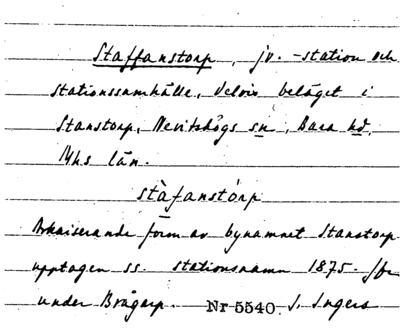 Staffanstorp, jv.-station och
stationssamhälle, delvis beläget i
Stanstorp, Nevitshögs sn, Bara hd,
Mhs län.
stàfanstórp
Arkaiserande form av bynamnet Stanstorp
upptagen ss. stationsnamn 1875. Jfr
under Brågarp. Nr 5540 I. Ingers